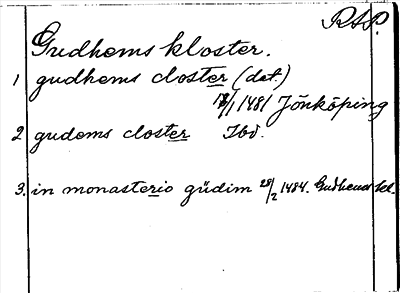 RAP.
Gudhems kloster.
1 gudhems closter (det.)
1481 Jönköping
2 gudems closter Ibd.
3. in monasterio gudim 28/2 1484. Gudhems kl.